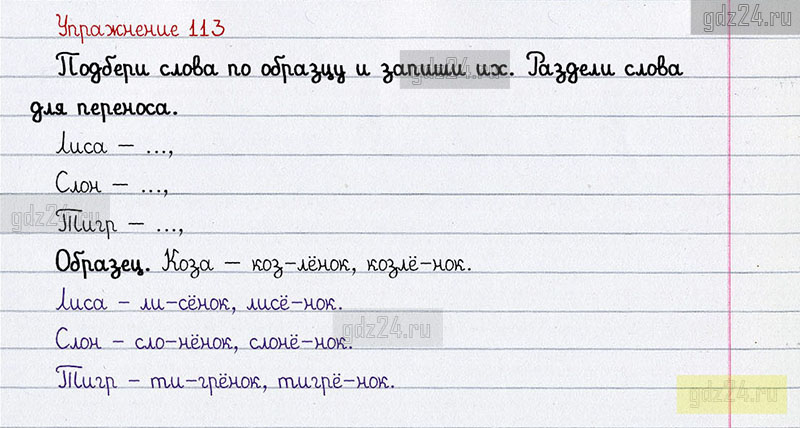 gdz24.ru
Упражнение 113
Подбери слова по образцу и запиши их. Раздели слова
gdz24.ru
для переноса.
Лиса – ...,
Слон – ...,
gdz24.ru
Тигр – ...,
Образец. Коза – коз-лёнок, козлё-нок.
Лиса – ли-сёнок, лисё-нок.
gdz24.ru
Слон – сло-нёнок, слонё-нок.
Тигр – ти-грёнок, тигрё-нок.
gdz24.ru